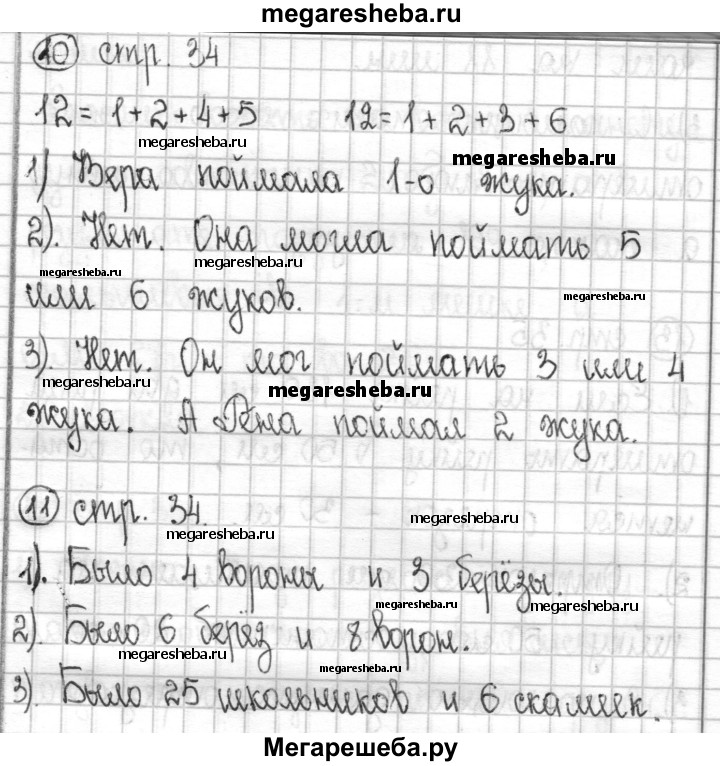 megaresheba.ru
10 стр. 34
12 = 1 + 2 + 4 + 5 12 = 1 + 2 + 3 + 6
megaresheba.ru
megaresheba.ru
1) Вера поймала 1-о жука.
2). Нет. Она могла поймать 5
megaresheba.ru
megaresheba.ru
или 6 жуков.
megaresheba.ru
3). Нет. Он мог поймать 3 или 4
megaresheba.ru
megaresheba.ru
жука. А Гена поймал 2 жука.
11 стр. 34.
megaresheba.ru
megaresheba.ru
1). Было 4 вороны и 3 берёзы.
megaresheba.ru
megaresheba.ru
2). Было 6 берёз и 8 ворон.
megaresheba.ru
megaresheba.ru
3). Было 25 школьников и 6 скамеек.
Мегарешеба.ру